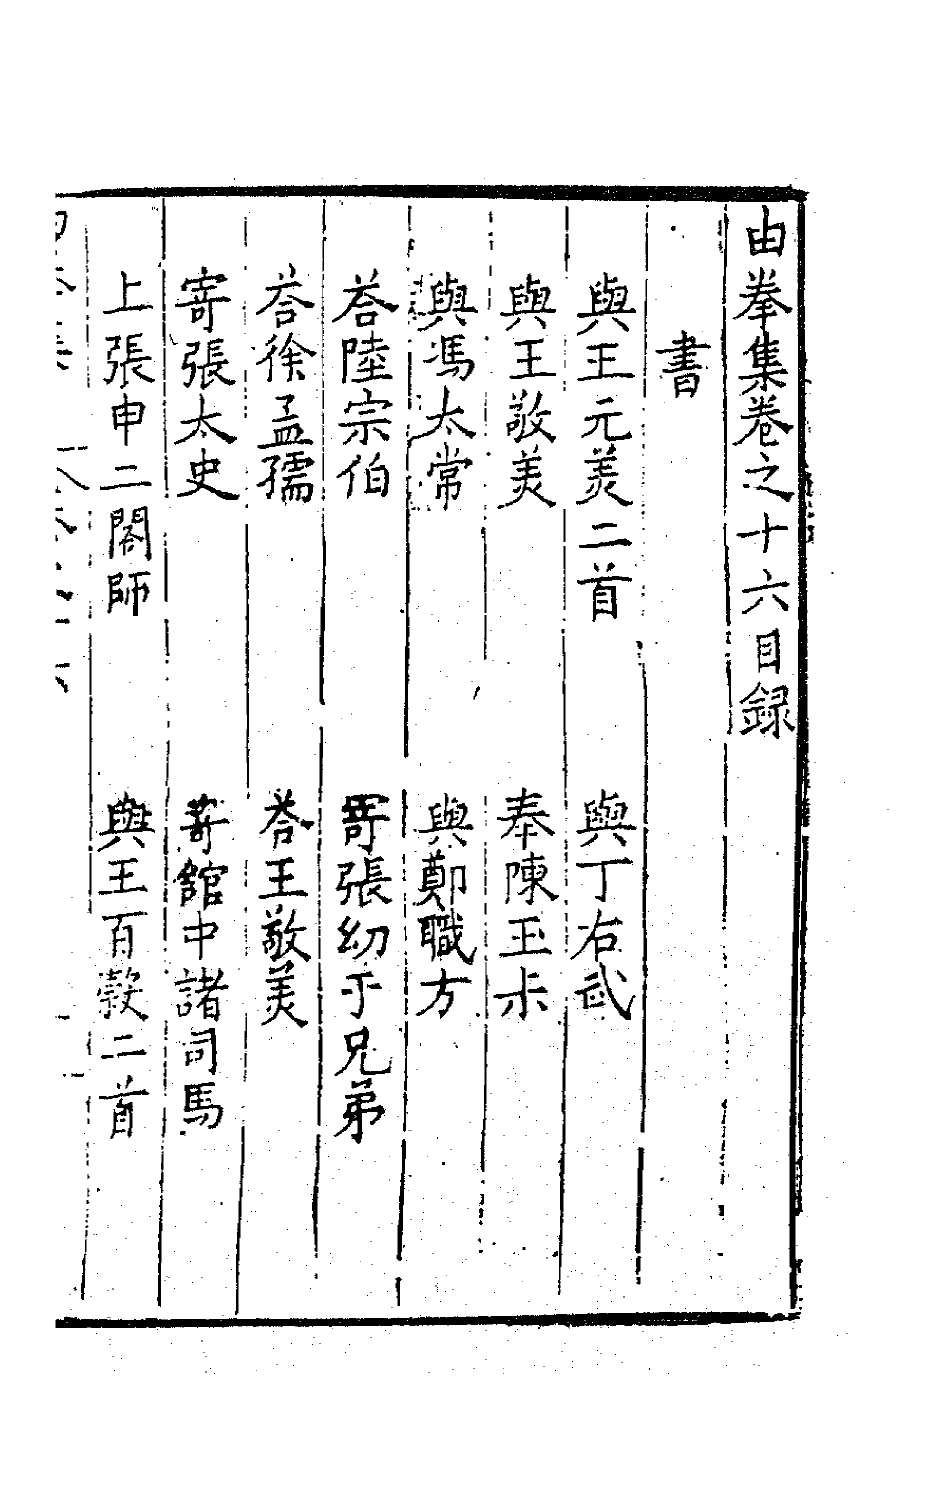 由拳集卷之十六目録
書
與王元美二首　與丁右武
與王敬美　奉陳玉未
與馮太常　與鄭職方
荅陸宗伯　寄張幼于兄弟
荅徐孟孺　荅王敬美
寄張太史　寄館中諸司馬
上張申二閣師　與王百穀二首